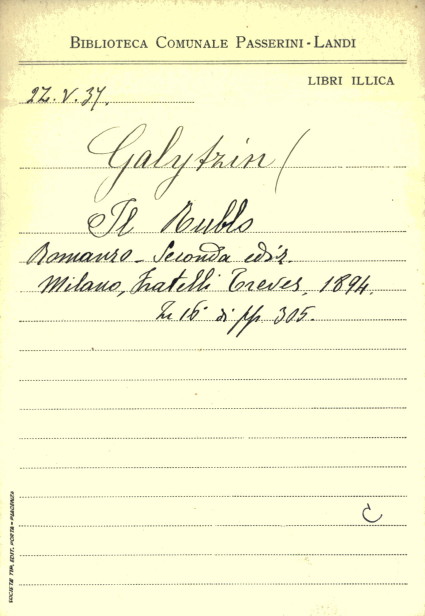 BIBLIOTECA COMUNALE PASSERINI-LANDI
LIBRI ILLICA
22.V.37.
Galytzin (
Il Rublo
Romanzo - Seconda ediz.
Milano, Fratelli Treves, 1894.
In 16° di pp. 305.
C
SOCIETÀ TIP. EDIT. PORTA - PIACENZA